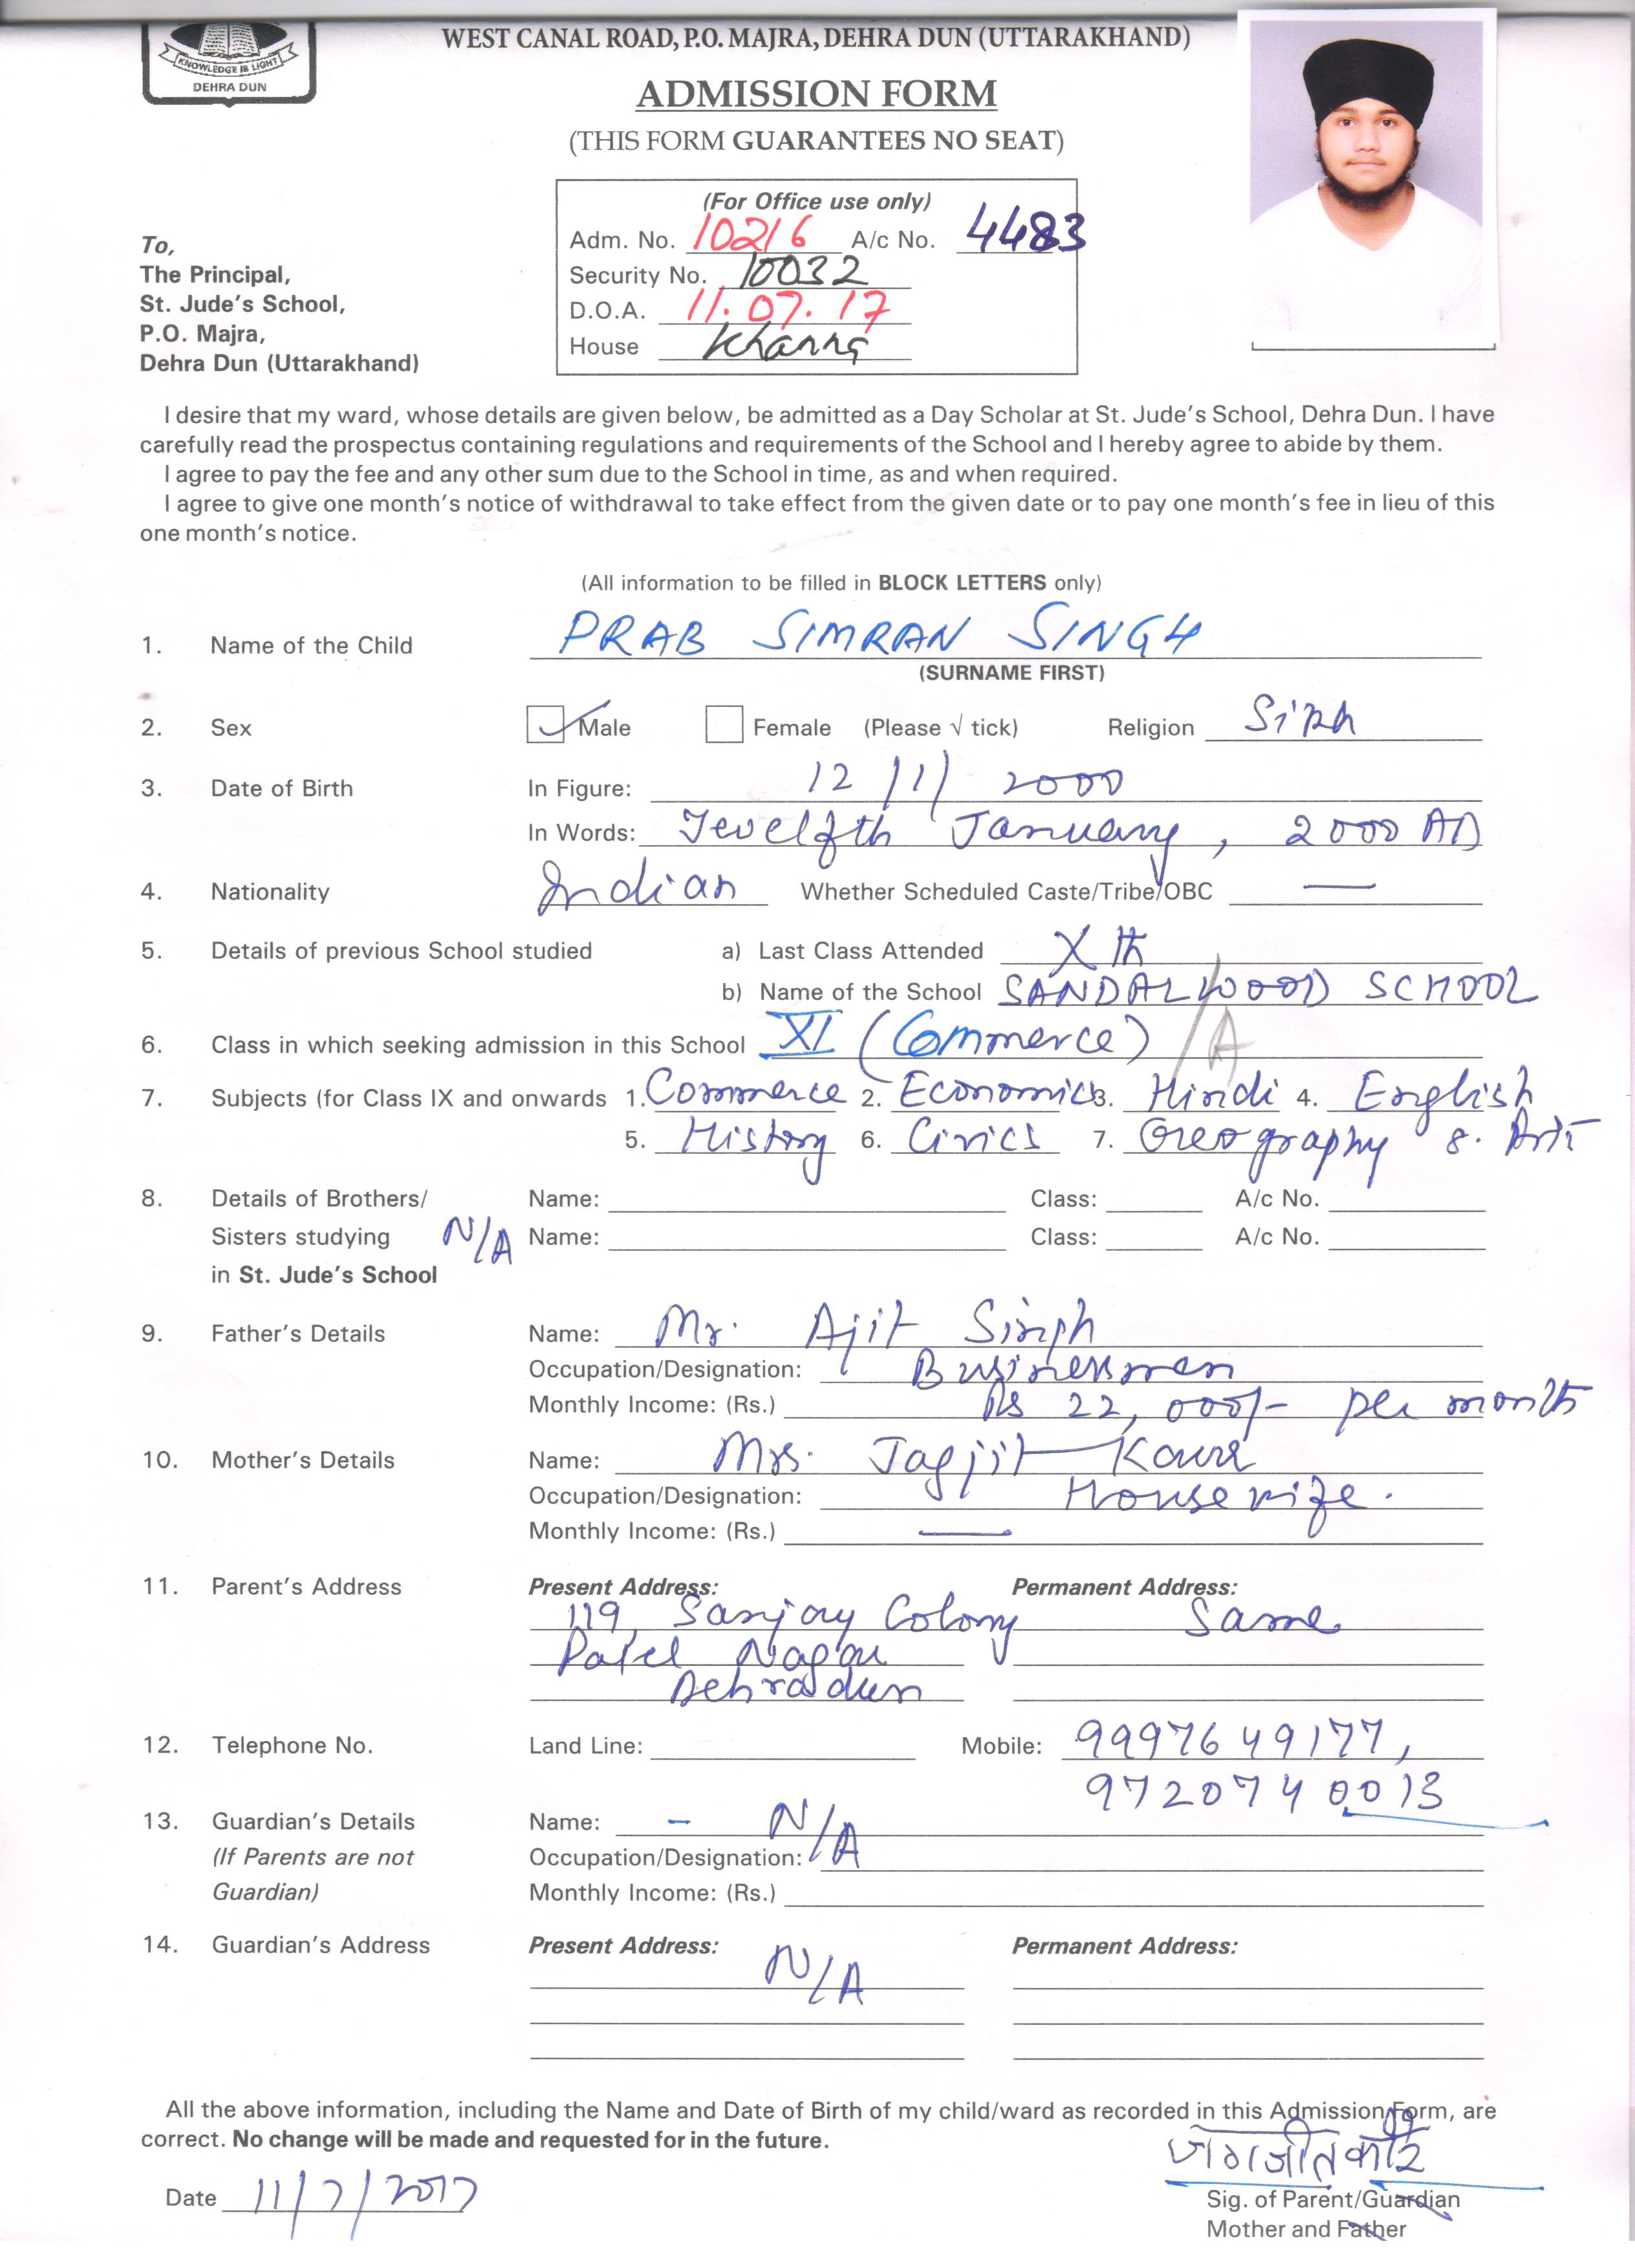 KNOWLEDGE IS LIGHT
DEHRA DUN
WEST CANAL ROAD, P.O. MAJRA, DEHRA DUN (UTTARAKHAND)
ADMISSION FORM
(THIS FORM GUARANTEES NO SEAT)
(For Office use only)
Adm. No. 10216 A/c No. 4483
Security No. 10032
D.O.A. 11.07.17
House Khanna
To,
The Principal,
St. Jude's School,
P.O. Majra,
Dehra Dun (Uttarakhand)
I desire that my ward, whose details are given below, be admitted as a Day Scholar at St. Jude's School, Dehra Dun. I have
carefully read the prospectus containing regulations and requirements of the School and I hereby agree to abide by them.
I agree to pay the fee and any other sum due to the School in time, as and when required.
I agree to give one month's notice of withdrawal to take effect from the given date or to pay one month's fee in lieu of this
one month's notice.
(All information to be filled in BLOCK LETTERS only)
1. Name of the Child PRAB SIMRAN SINGH
(SURNAME FIRST)
2. Sex Male Female (Please √ tick) Religion Sikh
3. Date of Birth In Figure: 12/1/2000
In Words: Tewelfth January, 2000 AD
4. Nationality Indian Whether Scheduled Caste/Tribe/OBC —
5. Details of previous School studied a) Last Class Attended Xth
b) Name of the School SANDALWOOD SCHOOL
6. Class in which seeking admission in this School XI (Commerce) /A
7. Subjects (for Class IX and onwards 1. Commerce 2. Economics 3. Hindi 4. English
5. History 6. Civics 7. Geography 8. Art
8. Details of Brothers/ Name: Class: A/c No.
Sisters studying N/A Name: Class: A/c No.
in St. Jude's School
9. Father's Details Name: Mr. Ajit Singh
Occupation/Designation: Businessmen
Monthly Income: (Rs.) Rs 22,000/- per month
10. Mother's Details Name: Mrs. Jagjit Kaur
Occupation/Designation: Housewife.
Monthly Income: (Rs.) —
11. Parent's Address Present Address: Permanent Address:
119, Sanjay Colony Same
Patel Nagar
Dehradun
12. Telephone No. Land Line: Mobile: 9997649177,
9720740013
13. Guardian's Details Name: - N/A
(If Parents are not Occupation/Designation:
Guardian) Monthly Income: (Rs.)
14. Guardian's Address Present Address: Permanent Address:
N/A
All the above information, including the Name and Date of Birth of my child/ward as recorded in this Admission Form, are
correct. No change will be made and requested for in the future.
जगजीत कौर
Date 11/7/2017
Sig. of Parent/Guardian
Mother and Father